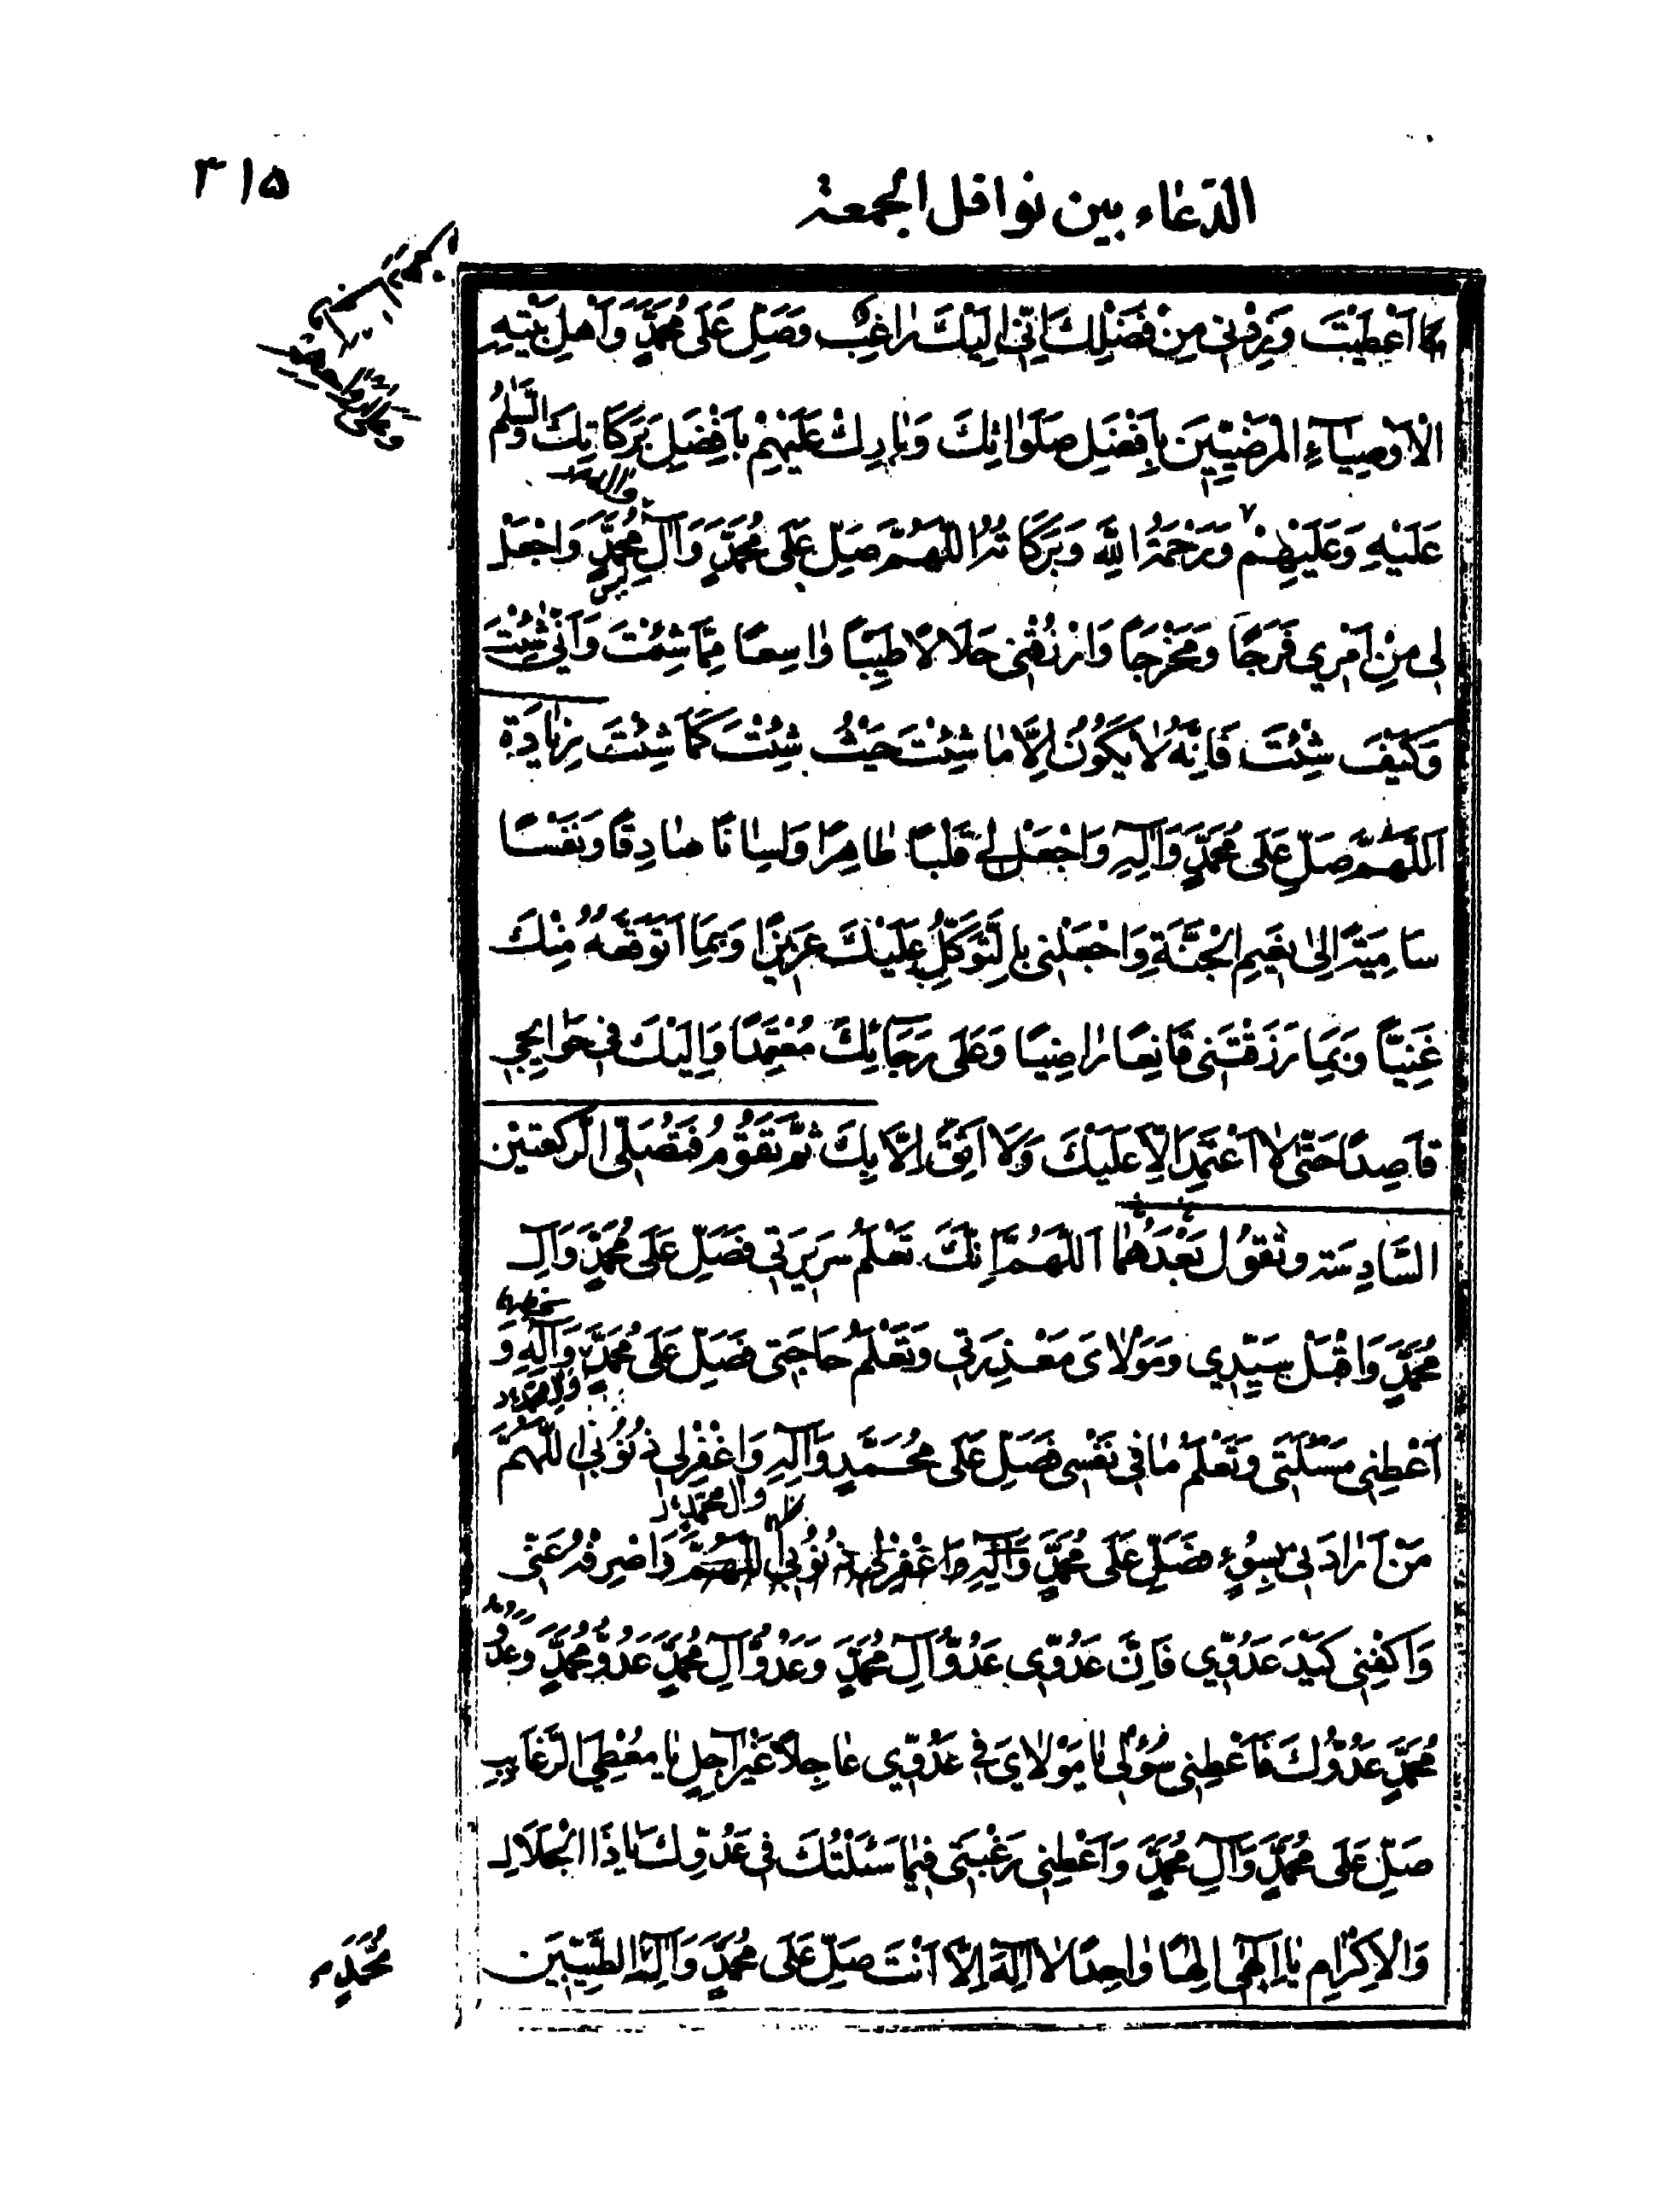 ٣١٥
الدّعاء بين نوافل الجمعة
مَا اَعْطَيْتَ وَزِدْنِي مِنْ فَضْلِكَ اِنّي اِلَيْكَ رٰاغِبٌ وَصَلِّ عَلَى مُحَمَّدٍ وَاَهْلِ بَيْتِهِ
الْاَوْصِيٰاءِ الْمَرْضِيّينَ بِاَفْضَلِ صَلَوٰاتِكَ وَبٰارِكْ عَلَيْهِمْ بِاَفْضَلِ بَرَكَاتِكَ وَالسَّلٰمُ
عَلَيْهِ وَعَلَيْهِمْ وَرَحْمَةُ اللّٰهِ وَبَرَكَاتُهُ اللّٰهُمَّ صَلِّ عَلَى مُحَمَّدٍ وَآلِ مُحَمَّدٍ وَاجْعَلْ
لِي مِنْ اَمْرِي فَرَجًا وَمَخْرَجًا وَارْزُقْنِي حَلَالًا طَيِّبًا وٰاسِعًا مِمَّا شِئْتَ وَاَنّٰى شِئْتَ
وَكَيْفَ شِئْتَ فَاِنَّهُ لٰا يَكُونُ اِلَّا مٰا شِئْتَ حَيْثُ شِئْتَ كَمَا شِئْتَ زِيٰادَة
اَللّٰهُمَّ صَلِّ عَلَى مُحَمَّدٍ وَآلِهِ وَاجْعَلْ لِي قَلْبًا طٰاهِرًا وَلِسٰانًا صٰادِقًا وَنَفْسًا
سَامِيَةً اِلىٰ نَعِيمِ الْجَنَّةِ وَاجْعَلْنِي بِالتَّوَكُّلِ عَلَيْكَ عَزِيزًا وَبِمَا اَتَوَقَّعُهُ مِنْكَ
غَنِيًّا وَبِمَا رَزَقْتَنِي قَانِعًا رٰاضِيًا وَعَلَى رَجَائِكَ مُعْتَمِدًا وَاِلَيْكَ فِي حَوَايِجِي
قَاصِدًا حَتّٰى لٰا اَعْتَمِدَ اِلّاٰ عَلَيْكَ وَلَا اَثِقَ اِلّاٰ بِكَ ثُمَّ تَقُومُ فَتُصَلِّي الرَّكْعَتَيْنِ
السَّادِسَة وَتَقُولُ بَعْدَهُمٰا اَللّٰهُمَّ اِنَّكَ تَعْلَمُ سَرِيرَتِي فَصَلِّ عَلَى مُحَمَّدٍ وَآلِ
مُحَمَّدٍ وَاقْبَلْ سَيِّدِي وَمَوْلٰاىَ مَعْذِرَتِي وَتَعْلَمُ حٰاجَتِي فَصَلِّ عَلَى مُحَمَّدٍ وَآلِهِ وَ
اَعْطِنِي مَسْئَلَتِي وَتَعْلَمُ مٰا فِي نَفْسِي فَصَلِّ عَلَى مُحَمَّدٍ وَآلِهِ وَاغْفِرْ لِي ذُنُوبِي اَللّٰهُمَّ
وال محمّد
مَنْ اَرٰادَنِي بِسُوءٍ فَصَلِّ عَلَى مُحَمَّدٍ وَآلِهِ وَاغْفِرْ لِي ذُنُوبِي اَللّٰهُمَّ وَاصْرِفْهُ عَنّي
وَاكْفِنِي كَيْدَ عَدُوّي فَاِنَّ عَدُوّي عَدُوُّ آلِ مُحَمَّدٍ وَعَدُوُّ آلِ مُحَمَّدٍ عَدُوُّ مُحَمَّدٍ وَعَدُوُّ
مُحَمَّدٍ عَدُوُّكَ فَاَعْطِنِي سُؤْلِي يٰا مَوْلٰايَ فِي عَدُوّي عٰاجِلاً غَيْرَ آجِلٍ يٰا مُعْطِيَ الرَّغَايِبِ
صَلِّ عَلَى مُحَمَّدٍ وَآلِ مُحَمَّدٍ وَاَعْطِنِي رَغْبَتِي فِيمٰا سَئَلْتُكَ فِي عَدُوِّكَ يٰا ذَا الْجَلَالِ
وَالْاِكْرٰامِ يٰا اِلٰهِي اِلٰهًا وٰاحِدًا لٰا اِلٰهَ اِلّاٰ اَنْتَ صَلِّ عَلَى مُحَمَّدٍ وَآلِهِ الطَّيِّبِينَ
مُحَمَّدٍ م